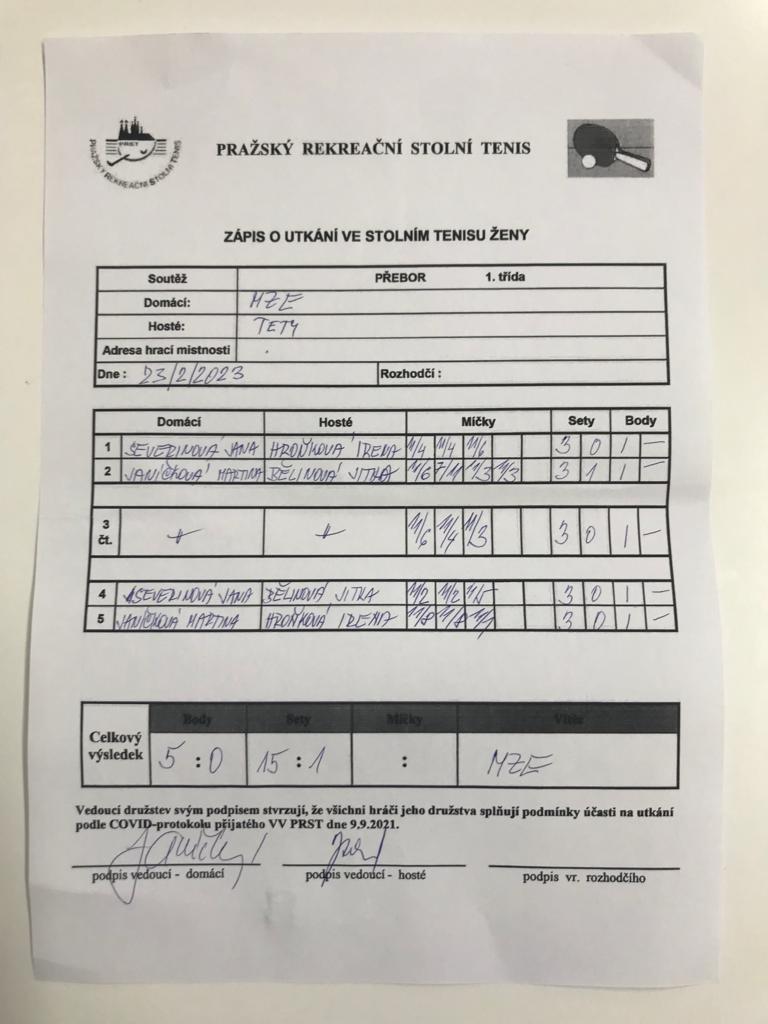 PRST
PRAŽSKÝ REKREAČNÍ STOLNÍ TENIS
PRAŽSKÝ REKREAČNÍ STOLNÍ TENIS
ZÁPIS O UTKÁNÍ VE STOLNÍM TENISU ŽENY
Soutěž PŘEBOR 1. třída
Domácí: MZE
Hosté: TETY
Adresa hrací mistnosti
Dne : 23/2/2023 Rozhodčí :
Domácí Hosté Míčky Sety Body
1 SEVERINOVÁ JANA HROŇKOVÁ IRENA 11/4 11/4 11/6 3 0 1 —
2 JANÍČKOVÁ MARTINA BĚLINOVÁ JITKA 11/6 7/11 11/3 11/3 3 1 1 —
3 čt. 11/6 11/4 11/3 3 0 1 —
4 SEVERINOVÁ JANA BĚLINOVÁ JITKA 11/2 11/2 11/5 3 0 1 —
5 JANÍČKOVÁ MARTINA HROŇKOVÁ IRENA 11/8 11/8 3 0 1 —
Body Sety Míčky Vítěz
Celkový výsledek 5 : 0 15 : 1 : MZE
Vedoucí družstev svým podpisem stvrzují, že všichni hráči jeho družstva splňují podmínky účasti na utkání
podle COVID-protokolu přijatého VV PRST dne 9.9.2021.
podpis vedoucí - domácí podpis vedoucí - hosté podpis vr. rozhodčího